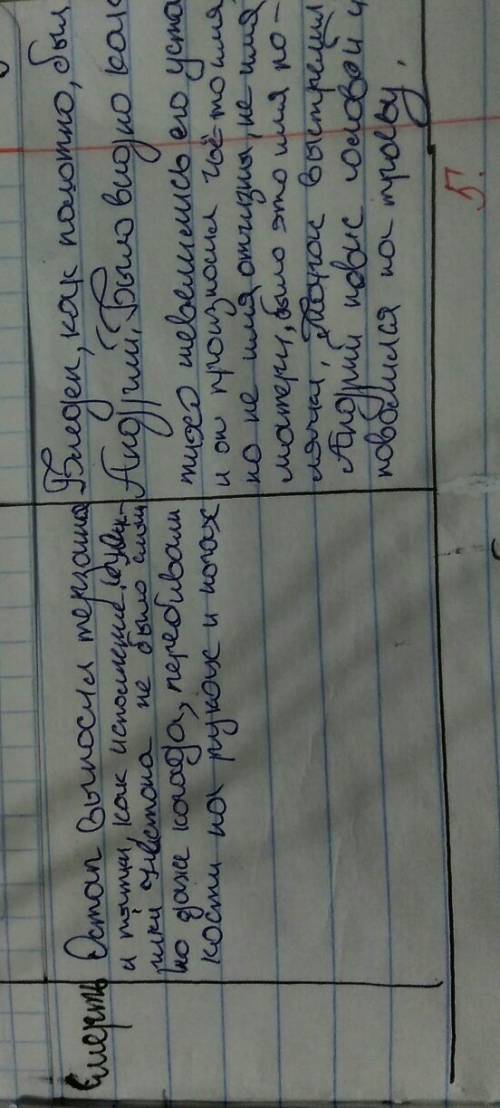 Смерть
Остап выносил терзания
и пытки, как исполине. Ни кри-
ка, ни стона не было слыш
но даже когда, перебивали
кости на руках и ногах
Бледен, как полотно, был
Андрий; Было видно как
тихо шевелились его уста
и он произносил чьё-то имя
но не имя отчизны, не имя
матери, было это имя по-
лячки, Тарас выстрелил
Андрий повис головой и
повалился на траву.
5.